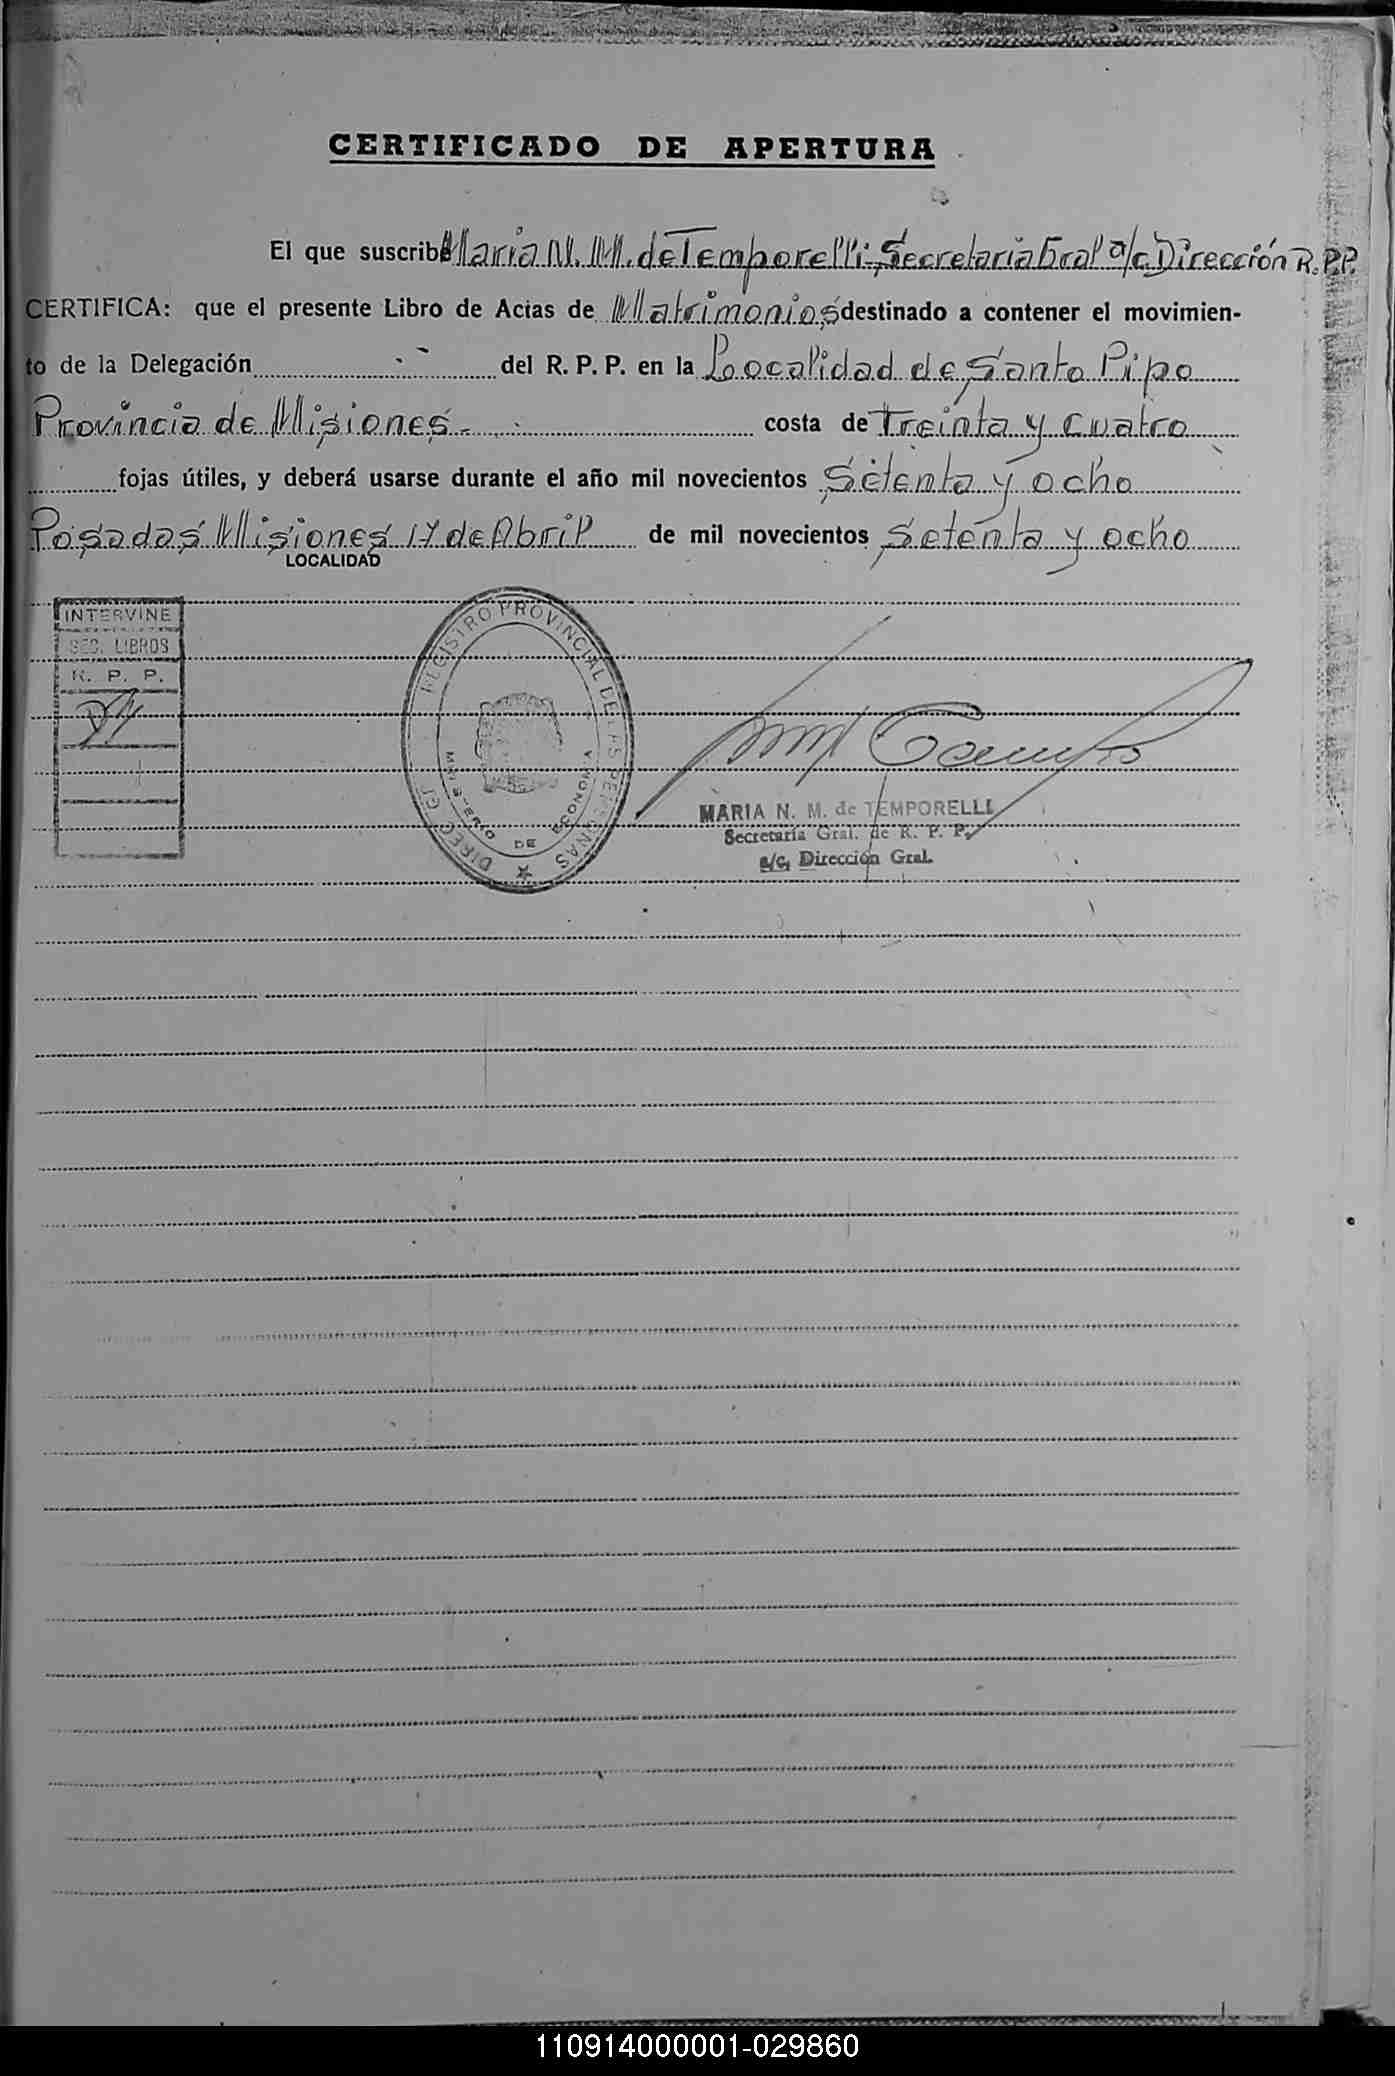 CERTIFICADO DE APERTURA
El que suscribe Maria N. M. de Temporelli, Secretaria Gral a/c Dirección R.P.P.
CERTIFICA: que el presente Libro de Actas de Matrimonios destinado a contener el movimien-
to de la Delegación - del R. P. P. en la Localidad de Santo Pipo
Provincia de Misiones.- costa de Treinta y cuatro
fojas útiles, y deberá usarse durante el año mil novecientos Setenta y ocho
Posadas Misiones 17 de Abril de mil novecientos Setenta y ocho
LOCALIDAD
INTERVINE
SEC. LIBROS
R. P. P.
REGISTRO PROVINCIAL DE LAS PERSONAS
DIREC. GL.
MINISTERIO DE ECONOMIA
MARIA N. M. de TEMPORELLI
Secretaría Gral. de R. P. P.
a/c, Dirección Gral.
110914000001-029860